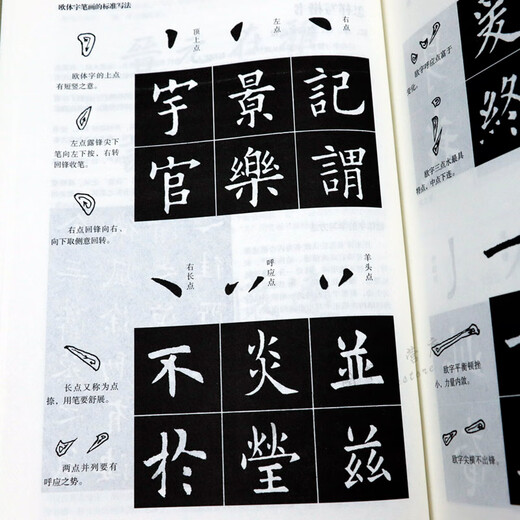 欧体字笔画的标准写法
顶上点
左点
右点
欧体字的上点
有短竖之意。
左点露锋尖下
笔向左下按，右转
回锋收笔。
右点回锋向右，
向下取侧意回转。
宇景記
官樂謂
右长点
呼应点
羊头点
长点又称为点
捺，用笔要舒展。
两点并列要有
呼应之势。
不炎並
於瑩兹
欧字呼应点富于
变化。
欧字三点水最具
特点，中点下连。
終
欧字平横顿挫
小，力量内敛。
欧字尖横不出锋。